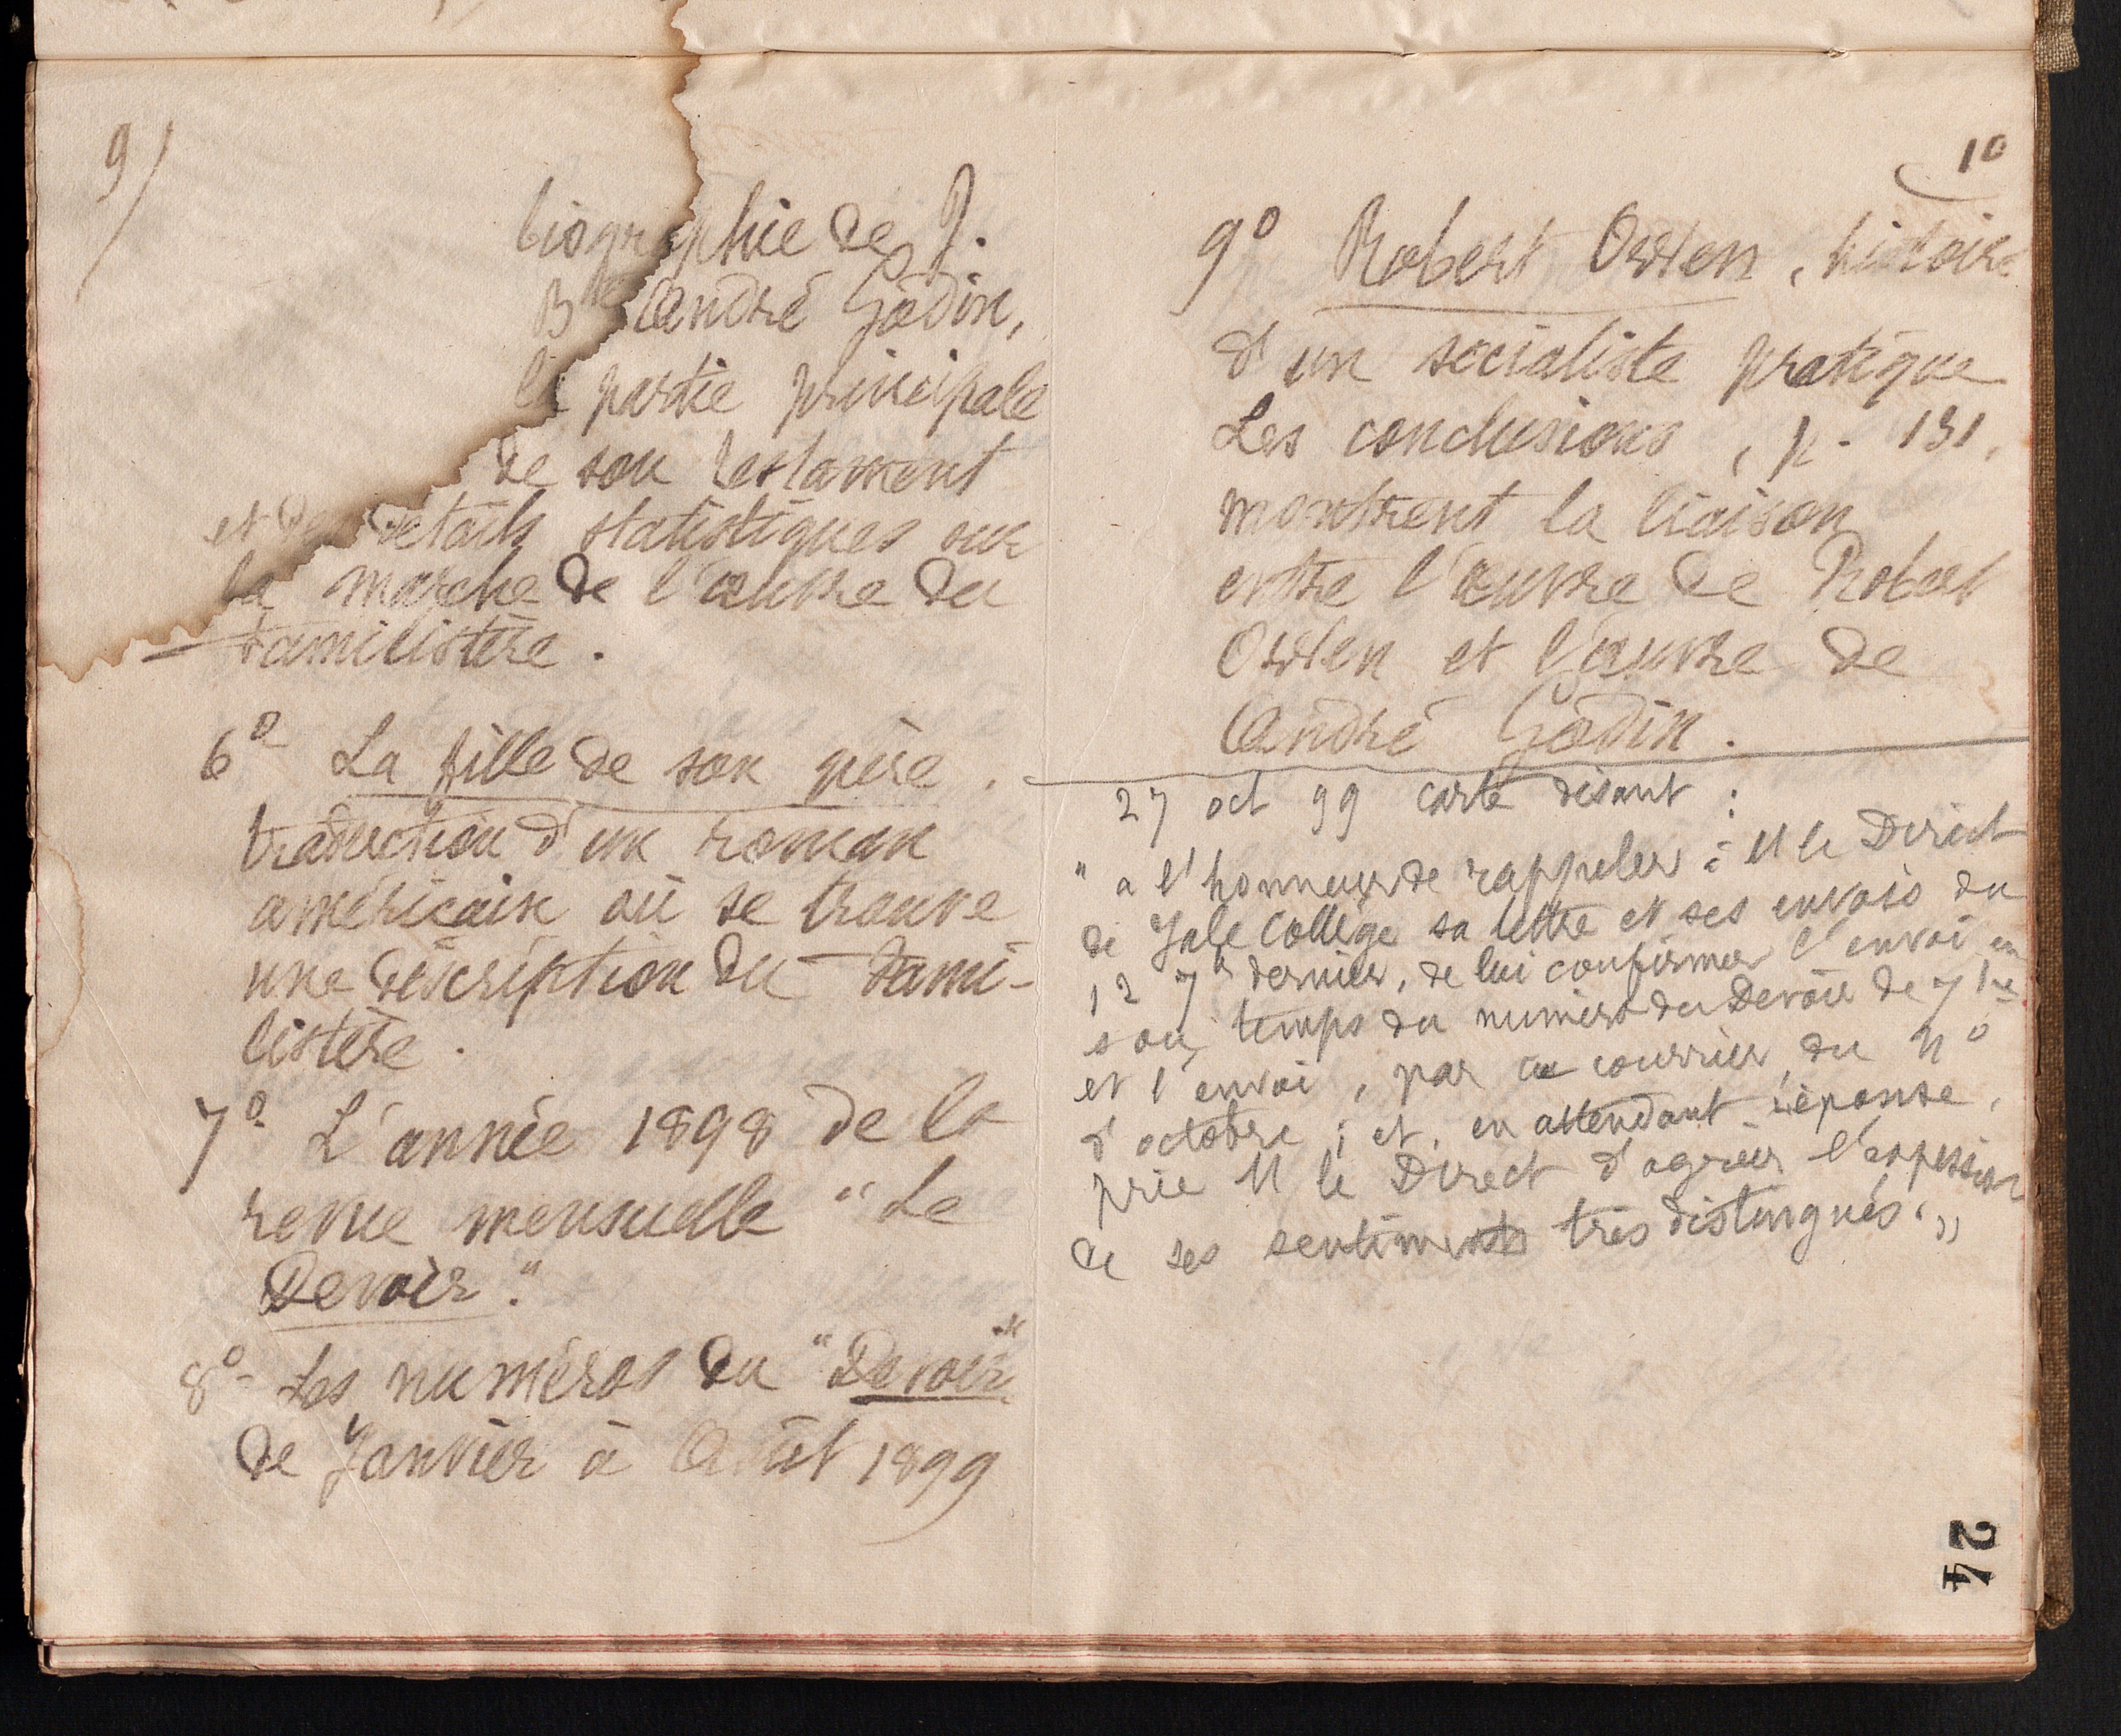 9/
biographie de J.
Bte André Godin,
la partie principale
de son testament
et des détails statistiques sur
la marche de l'œuvre du
Familistère.
6º La fille de son père,
traduction d'un roman
américain où se trouve
une description du Fami-
listère.
7º L'année 1898 de la
revue mensuelle "Le
Devoir".
8º - Les numéros du "Devoir"
de Janvier à Août 1899
10
9º Robert Owen, histoire
d'un socialiste pratique
Les conclusions, p. 131,
montrent la liaison
entre l'œuvre de Robert
Owen et l'œuvre de
André Godin.
27 oct 99 carte disant :
" a l'honneur de rappeler à M le Direct
de Yale College sa lettre et ses envois du
12 7bre dernier, de lui confirmer l'envoi en
son temps du numéro du Devoir de 7bre
et l'envoi, par ce courrier, du Nº
d'octobre ; et, en attendant réponse,
prie M le Direct d'agréer l'expression
de ses sentiments très distingués."
24